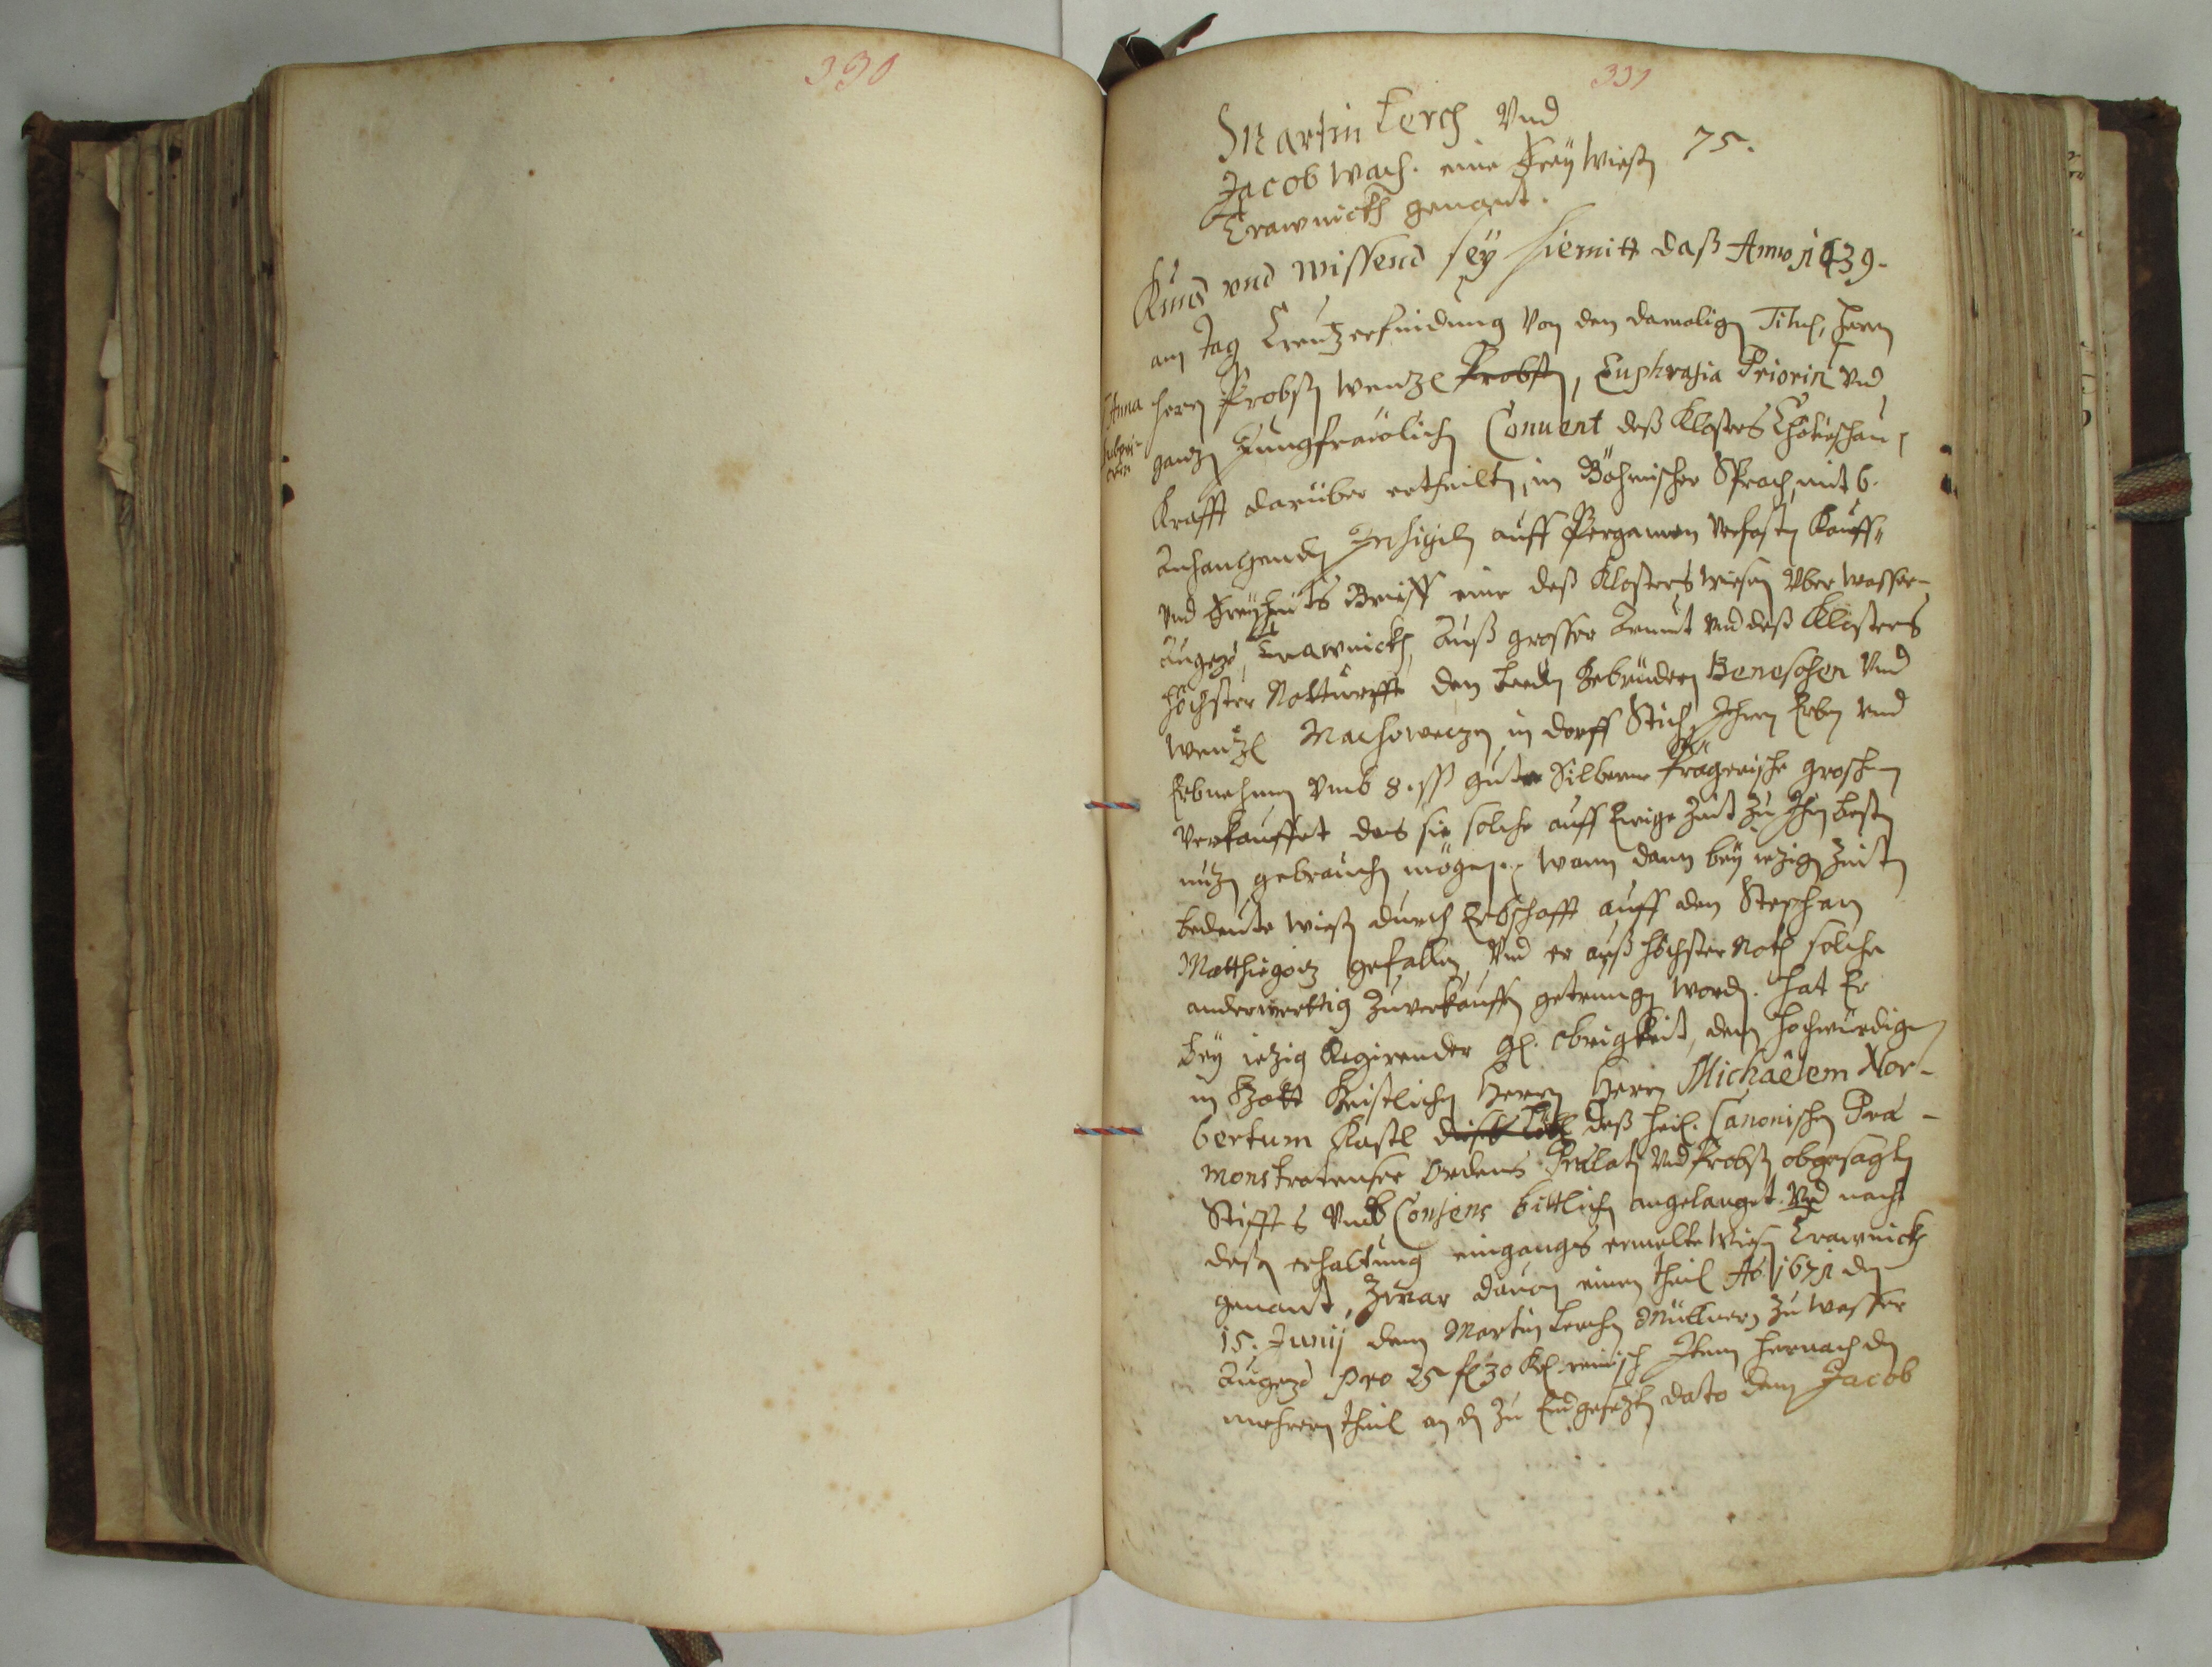 390
391
Martin Lerch Vnd
Jacob Wach. eine Freÿ Wießen 75.
Trawnickh genant.
Kund vnd wissend seÿ hiemitt daß Anno 1439.
am Tag Creutzerfindung Von den damaligen Titul, Herrn
Herrn Probsten Wentzl Probsten, Euphrasia Priorin vnd
Anna
Subpri-
orin
gantzen Jungfraulichen Conuent deß Klosters Chotieschau,
Krafft darüber ertheilten, in Böhmischer Sprach, mit 6.
Anhangenden Insigiln auff Pergamen verfasten Kauff-
vnd Freÿheits Brieff eine deß Klosters Wiesen Vber Wasser-
Augezd, Trawnickh, Auß grosser Armut vnd deß Klosters
höchster Notturfft den beeden Gebrüdern Beneschen Vnd
Wentzl Machoweczen in dorff Stich, Ihren Erben vnd
Erbnehmen Vmb 8. ßß gute Silberne Pragerische groschen
Verkauffet das sie solche auff Ewige Zeit zu Ihren besten
nutzen gebrauchen mögen. Wann dann beÿ ietzigen Zeiten
bedeute Wießen durch Erbschafft auff den Stephan
Matthiegowitz gefallen, Vnd er auß höchster Noth solche
anderwerttig Zuverkauffen getrungen worden. Hat Er
beÿ ietzig Regirender Gl. Obrigkeit, dem Hochwürdigen
in Gott Geistlichen Herrn Herrn Michaëlem Nor-
bertum Kastl deß heil. Canonischen Præ-
monstratenser Ordens Prælaten Vnd Probsten obgesagten
Stiffts Vmb Consens bittlichen angelanget. Vnd nach
dessen erhaltung eingangs ermelte Wießen Trawnickh
genant, Zwar dauon einen theil Ao. 1671 den
15. Junij dem Martin Lerchen Müllnern zu Wasser
Augezd pro 25 fl 30 Kr. reinisch Item hernach den
mehrern theil an den zu End gesetzten dato dem Jacob